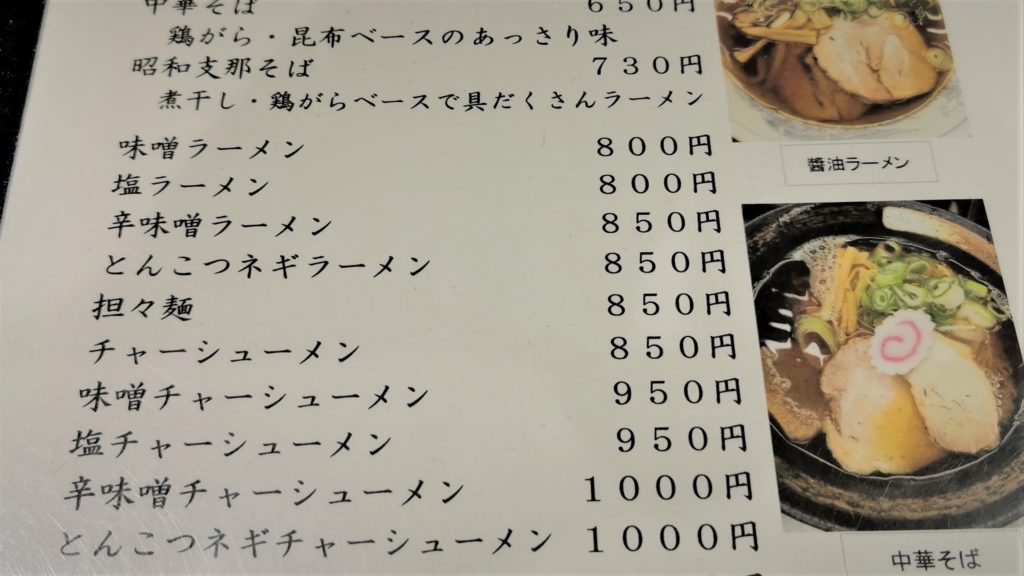 中華そば ６５０円
鶏がら・昆布ベースのあっさり味
昭和支那そば ７３０円
煮干し・鶏がらベースで具だくさんラーメン
味噌ラーメン ８００円
塩ラーメン ８００円
辛味噌ラーメン ８５０円
とんこつネギラーメン ８５０円
担々麺 ８５０円
チャーシューメン ８５０円
味噌チャーシューメン ９５０円
塩チャーシューメン ９５０円
辛味噌チャーシューメン １０００円
とんこつネギチャーシューメン １０００円
醬油ラーメン
中華そば